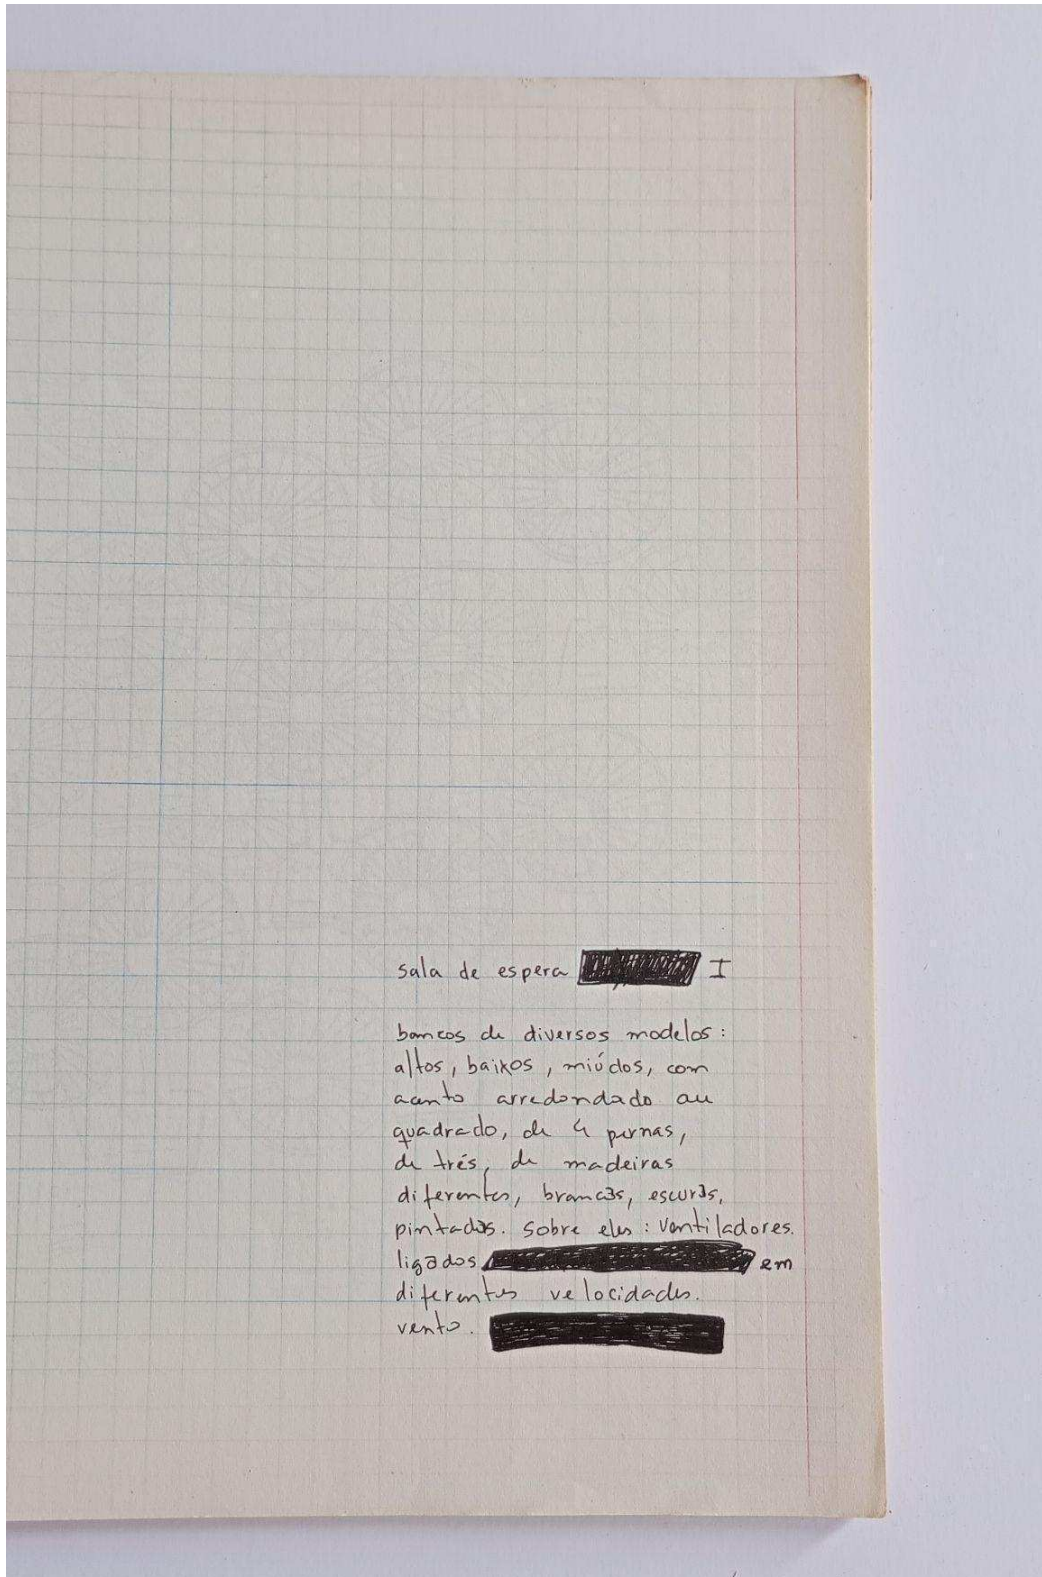 sala de espera I
bancos de diversos modelos:
altos, baixos, miúdos, com
acento arredondado ou
quadrado, de 4 pernas,
de três, de madeiras
diferentes, brancas, escuras,
pintadas. sobre eles: ventiladores.
ligados em
diferentes velocidades.
vento.